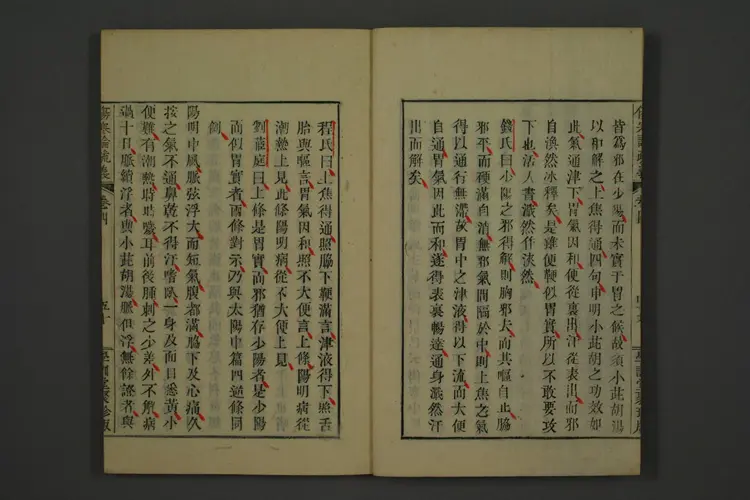 皆爲邪在少陽而未實于胃之候故須小茈胡湯
以和解之上焦得通四句申明小茈胡之功效如
此氣通津下胃氣因和便從裏出汗從表出而邪
自渙然冰釋矣是雖便鞕似胃實所以不敢要攻
下也活人書濈然作泱然
錢氏曰少陽之邪得解則胸邪去而其嘔自止脇
邪平而鞕滿自消無邪氣間隔於中則上焦之氣
得以通行無滯故胃中之津液得以下流而大便
自通胃氣因此而和遂得表裏暢達通身濈然汗
出而解矣
程氏曰上焦得通照脇下鞕滿言津液得下照舌
胎與嘔言胃氣因和照不大便言上條陽明病從
潮熱上見此條陽明病從不大便上見
劉茝庭曰上條是胃實而邪猶存少陽者是少陽
而似胃實者兩條對示乃與太陽中篇四逆條同
例
陽明中風脈弦浮大而短氣腹都滿脇下及心痛久
按之氣不通鼻乾不得汗嗜臥一身及面目悉黃小
便難有潮熱時時噦耳前後腫刺之少差外不解病
過十日脈續浮者與小茈胡湯脈但浮無餘證者與
傷寒論疏義 卷四 五十